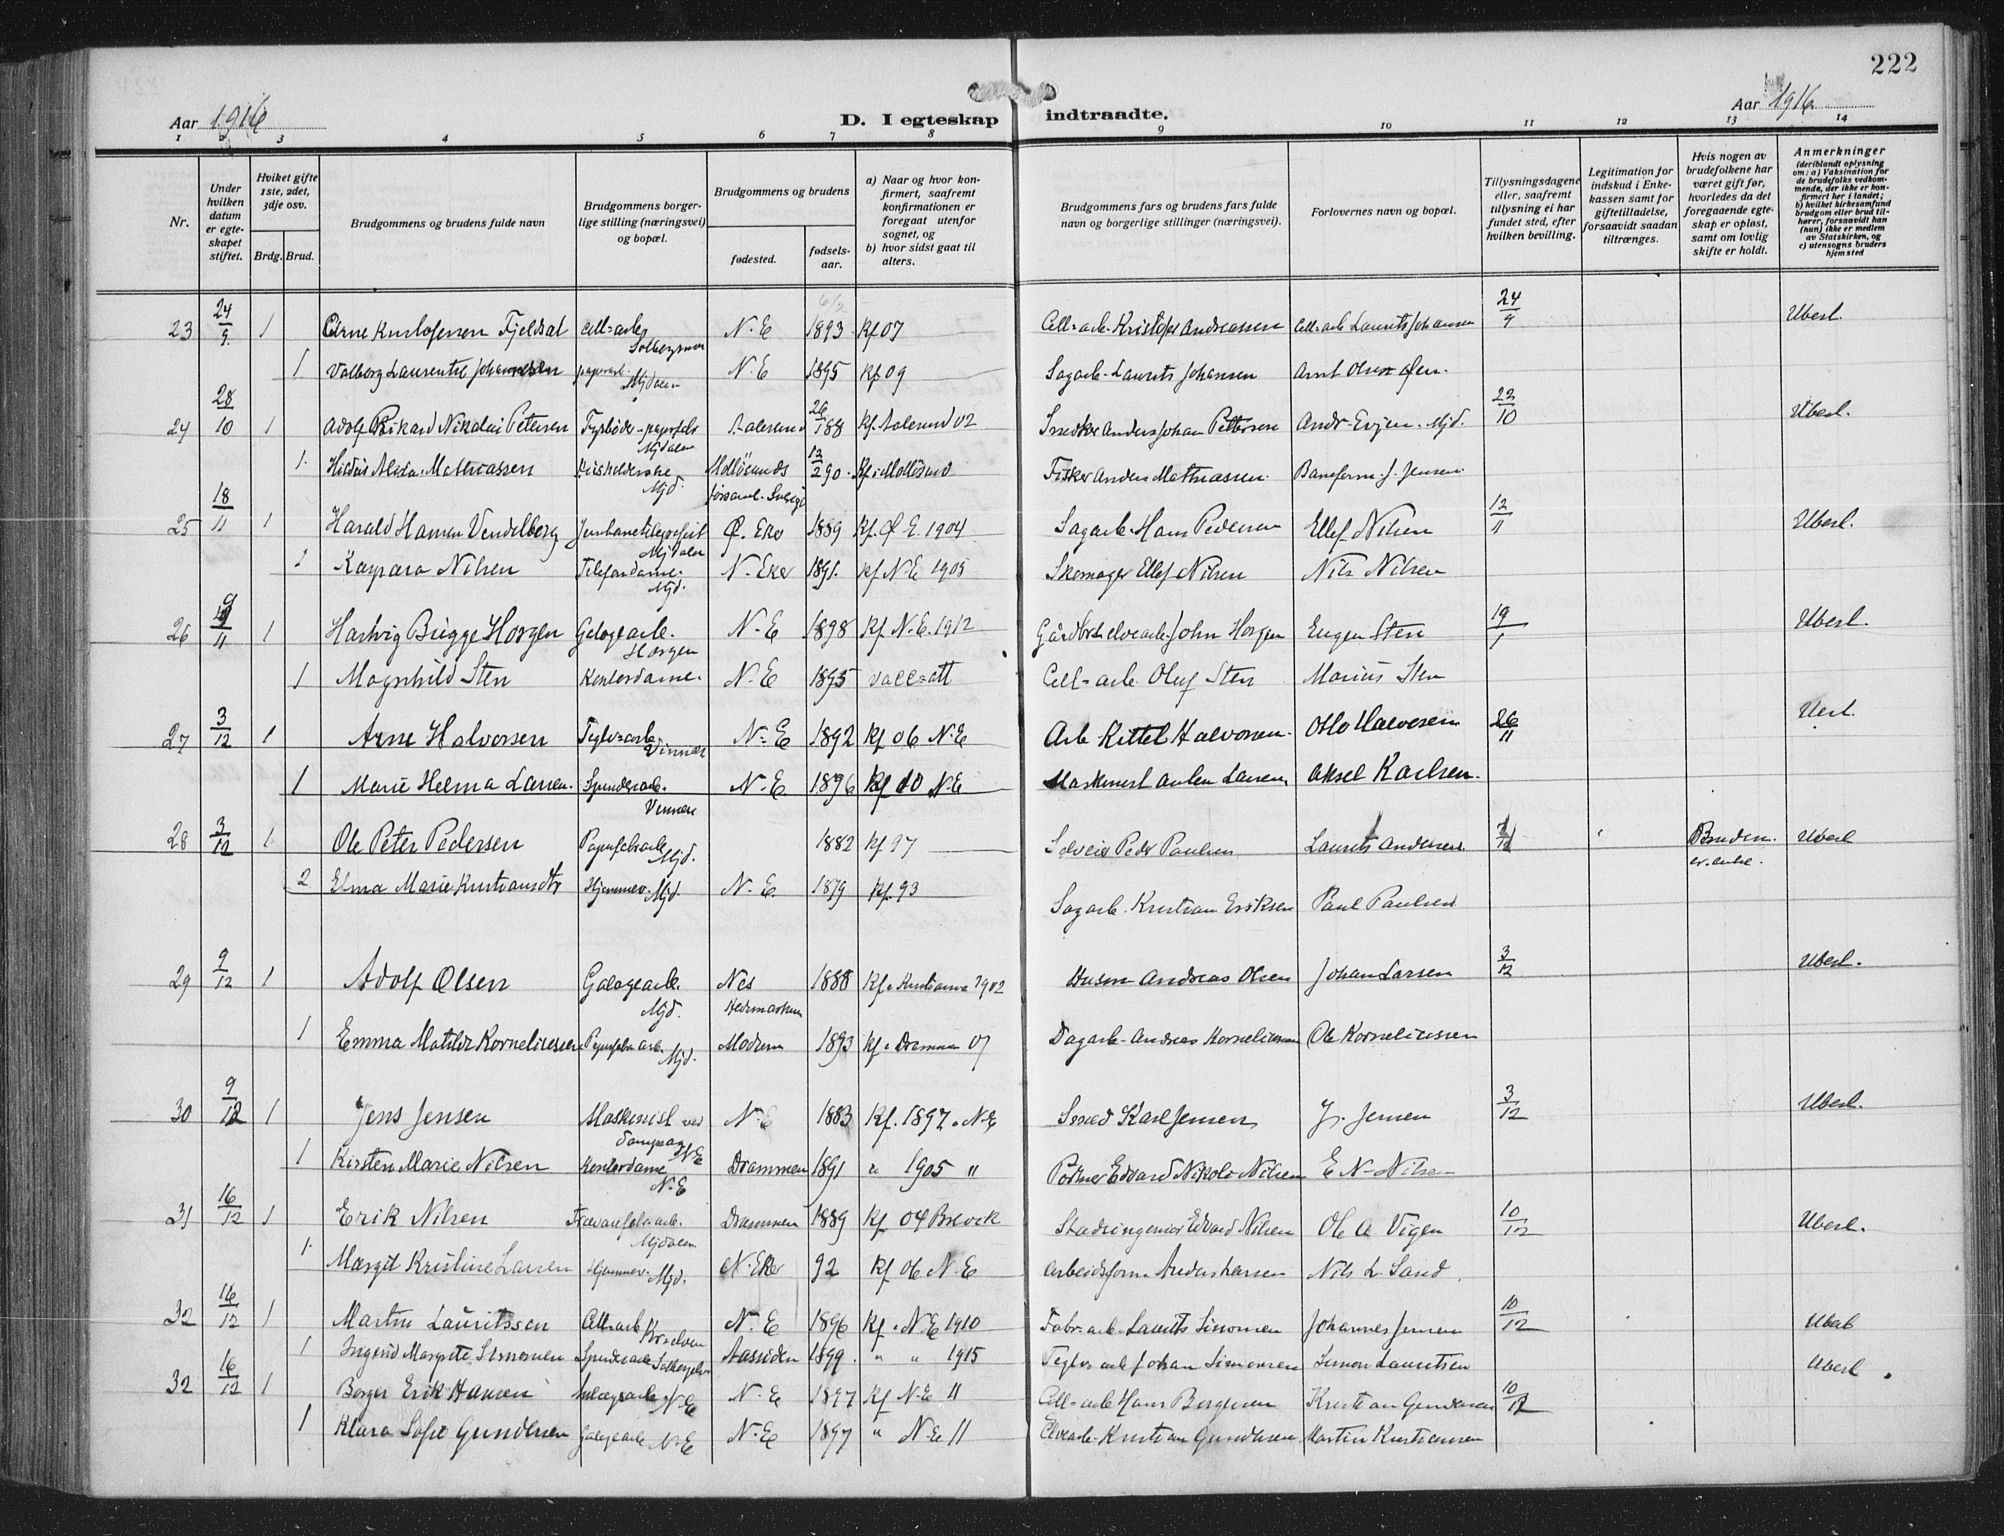 222
Aar 1916
D. I egteskap indtraadte.
Aar 1916
1 2 3 4 5 6 7 8 9 10 11 12 13 14
Nr.
Under hvilken datum er egteskapet stiftet.
Hviket gifte 1ste, 2det, 3dje osv.
Brdg. Brud.
Brudgommens og brudens fulde navn
Brudgommens borgerlige stilling (næringsvei) og bopæl.
Brudgommens og brudens
fødested.
fødselsaar.
a) Naar og hvor konfirmert, saafremt konfirmationen er foregaat utenfor sognet, og
b) hvor sidst gaat til alters.
Brudgommens fars og brudens fars fulde navn og borgerlige stillinger (næringsvei).
Forlovernes navn og bopæl.
Tillysningsdagene eller, saafremt tillysning ei har fundet sted, efter hvilken bevilling.
Legitimation for indskud i Enkekassen samt for giftetilladelse, forsaavidt saadan tiltrænges.
Hvis nogen av brudefolkene har været gift før, hvorledes da det foregaaende egteskap er opløst, samt om lovlig skifte er holdt.
Anmerkninger
(deriblandt oplysning om: a) Vaksination for de brudefolks vedkommende, der ikke er konfirmert her i landet; b) hvilket kirkesamfund brudgom eller brud tilhører, forsaavidt han (hun) ikke er medlem av Statskirken, og c) utensogns bruders hjemsted
23 24/9 1 Arne Kristofersen Fjeldsat N-E 1893 Kf 07 Kristofer Andreassen Laurits Johansen 24/9 Ubesl.
1 Valborg Laurentze Johannesen Mjdalen N.E 1895 Kf 09 Sagarb. Laurits Johansen Arnt Olsen
24 28/10 1 Adolf Rikard Nikolai Petersen Mjdalen Aalesund 26/1 88 Kf. Aalesund 02 Anders Johan Pettersen Andr. Evjen. Mjd. 22/10 Ubesl.
1. Alida Mathiassen Husholderske Mjd. Mollösunds 12/2 90. Kf. i Mollösund Fisker Anders Mathiassen. Baneform. J. Jensen
25 18/11 1 Harald Hansen Vendelborg Mjdalen Ø. Eker 1889 Kf. Ø E. 1904 Sagarb. Hans Pedersen Ellef Nilsen 12/11 Ubesl.
1 Kaspara Nilsen Telefondame. Mjd. N. Eker 1891. Kf N-E 1905 Skomager Ellef Nilsen Nils Nilsen
26 1 Hartvig Brügge Horgen Galogearb. Horgen N-E 1898 Kf N.E. 1912 John Horgen Eugen Sten 19/ Ubesl.
1 Magnhild Sten Kontordame. N-E 1895 Cell-arb. Oluf Sten Marius Sten
27 3/12 1 Arne Halvorsen Teglv.arb. Vinnes N-E 1892 Kf 06 N-E Arb. Kittel Halvorsen. Otto Halvorsen 26/11
1 Marie Helma Larsen. Spinderarb. N-E. 1896 Kf 10 N-E Maskinist Larsen Aksel Karlsen.
28 3/12 1 Ole Peter Pedersen Papirfabarb. Mjd. 1882 Kf 97 Peder Paulsen Laurits Andersen Bruden er enke. Ubesl
2 Elma Marie Kristiansdtr Hjemmev. Mjd N-E. 1879 Kf. 93 Sagarb. Kristian Eriksen Paul Paulsen
29 9/12 1 Adolf Olsen Galogearb. Mjd. Nes Hedemarken 1888 Kf. Kristiania 1902 Husm Andreas Olsen Johan Larsen 3/12 Ubesl.
1 Emma Matilde Korneliussen Papirfabr. arb. Mjd. Modum 1893 Kf. Drammen 07 Dagarb. Andreas Korneliussen Ole Korneliussen
30 9/12 1 Jens Jensen Maskinist ved Dampsag N-E N-E 1883 Kf. 1897. N-E Karl Jensen J. Jensen 3/12 Ubesl.
1 Kirsten Marie Nilsen Kontordame N-E Drammen 1891 " 1905 " Edvard Nikolai Nilsen E N. Nilsen
31 16/12 1 Erik Nilsen Mjdalen Drammen 1889 Kf. 04 Brevik Stadsingeniør Edvard Nilsen Ole A. Vigen 10/12 Ubesl.
1. Margit Kristine Larsen Hjemmev. Mjd. N. Eker 92 Kf 06 N-E Arbeidsform. Anders Larsen Nils L. Sand.
32 16/12 1 Martin Lauritssen Cell.arb. N. E 1896 Kf. N.E 1910 Fabr.arb. Laurits Simonsen Johannes Jensen 10/12 Ubesl
1 Ingrid Margrete Simonsen Spinderarb. Aassiden 1899. " " 1915 Teglv.arb Johan Simonsen Simon Lauritsen Ubesl
32 16/12 1 Borger Erik Hansen N-E N-E 1897 Kf N-E 11 Cell-arb Hans Borgersen Kristian Gundersen 10/12
1 Klara Sofie Gundersen Galogearb. N-E N-E 1897 " N-E 11 Elvearb. Kristian Gundersen. Martin Kristiansen